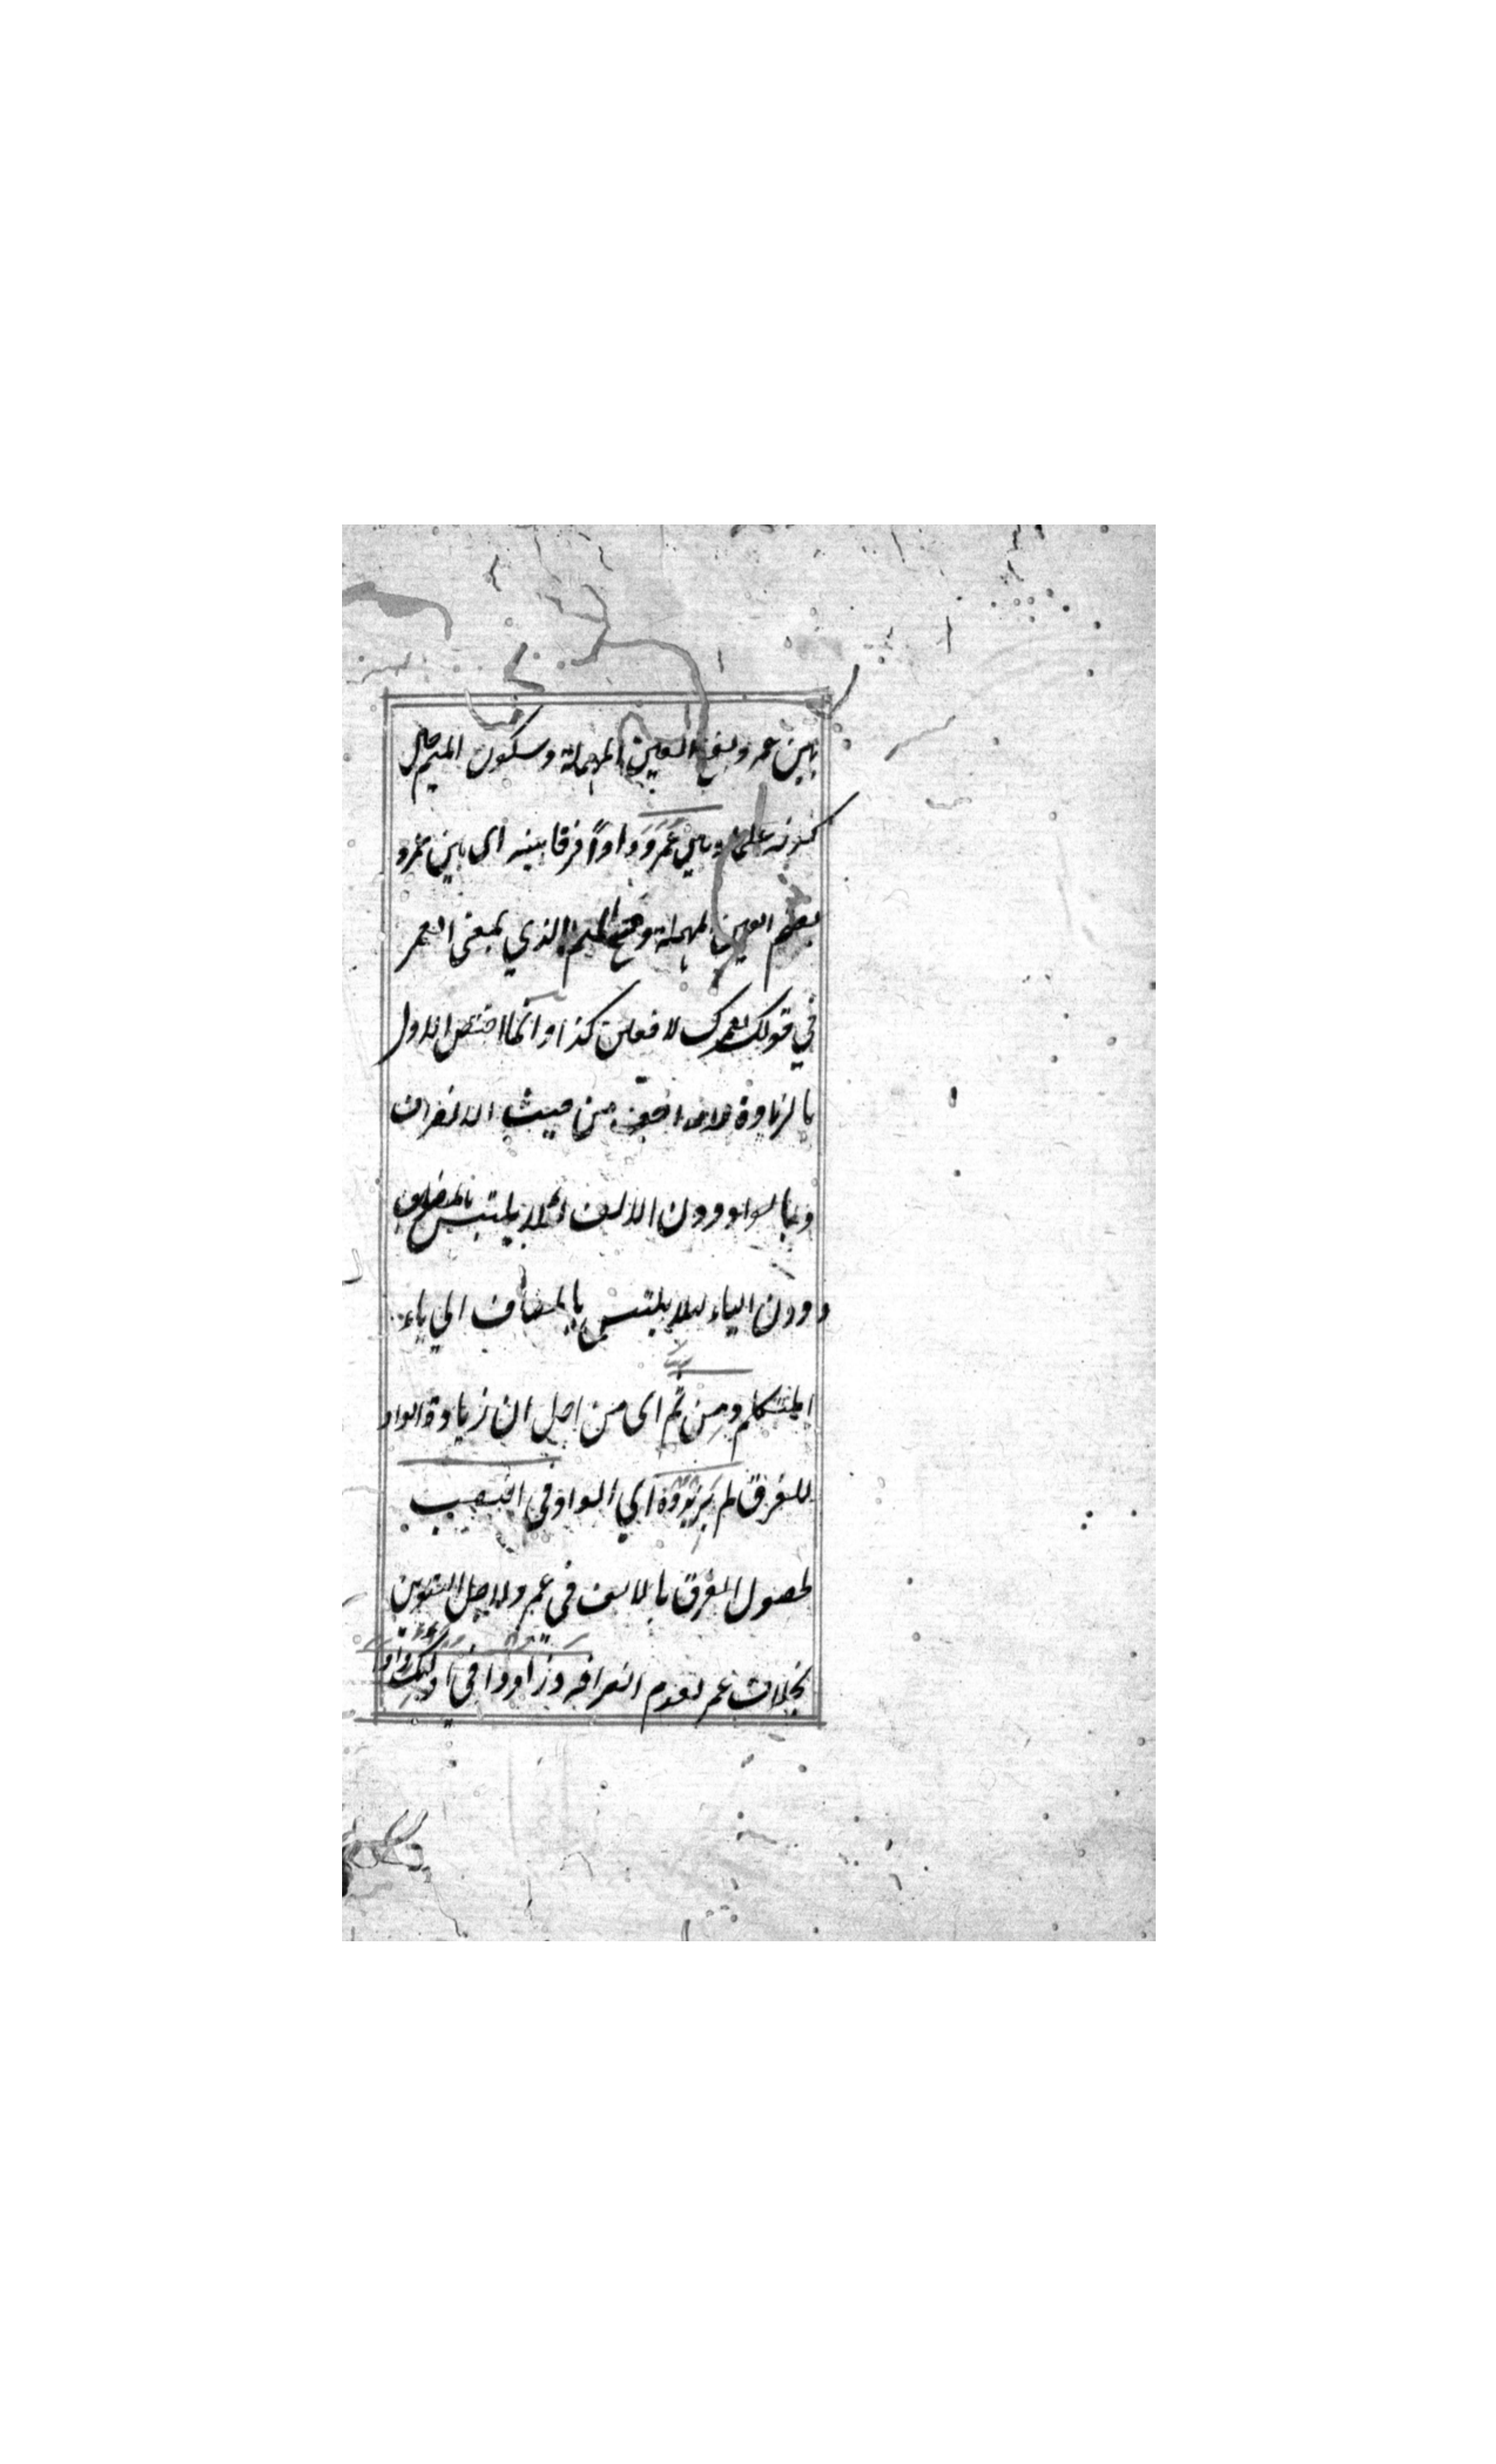 بين عمرو بفتح العين المهملة وسكون الميم حال
كونه علما وبين عمرو واوا فرقا بينه اى بين عمرو
بضم العين المهملة وفتح الميم الذي بمعنى العمر
في قولك لعمرك لافعلن كذا وانما اختص الاول
بالزيادة لانه اخف من حيث الانصراف
وبالواو دون الالف لئلا يلتبس بالمنصوب
و دون الياء لئلا يلتبس بالمضاف الي ياء
المتكلم ومن ثم اى من اجل ان زيادة الواو
للفرق لم يزيدوه اي الواو في النصب
لحصول الفرق بالالف في عمر ولاجل التنوين
بخلاف عمر لعدم انصرافه وزادوا في اولئك واوا